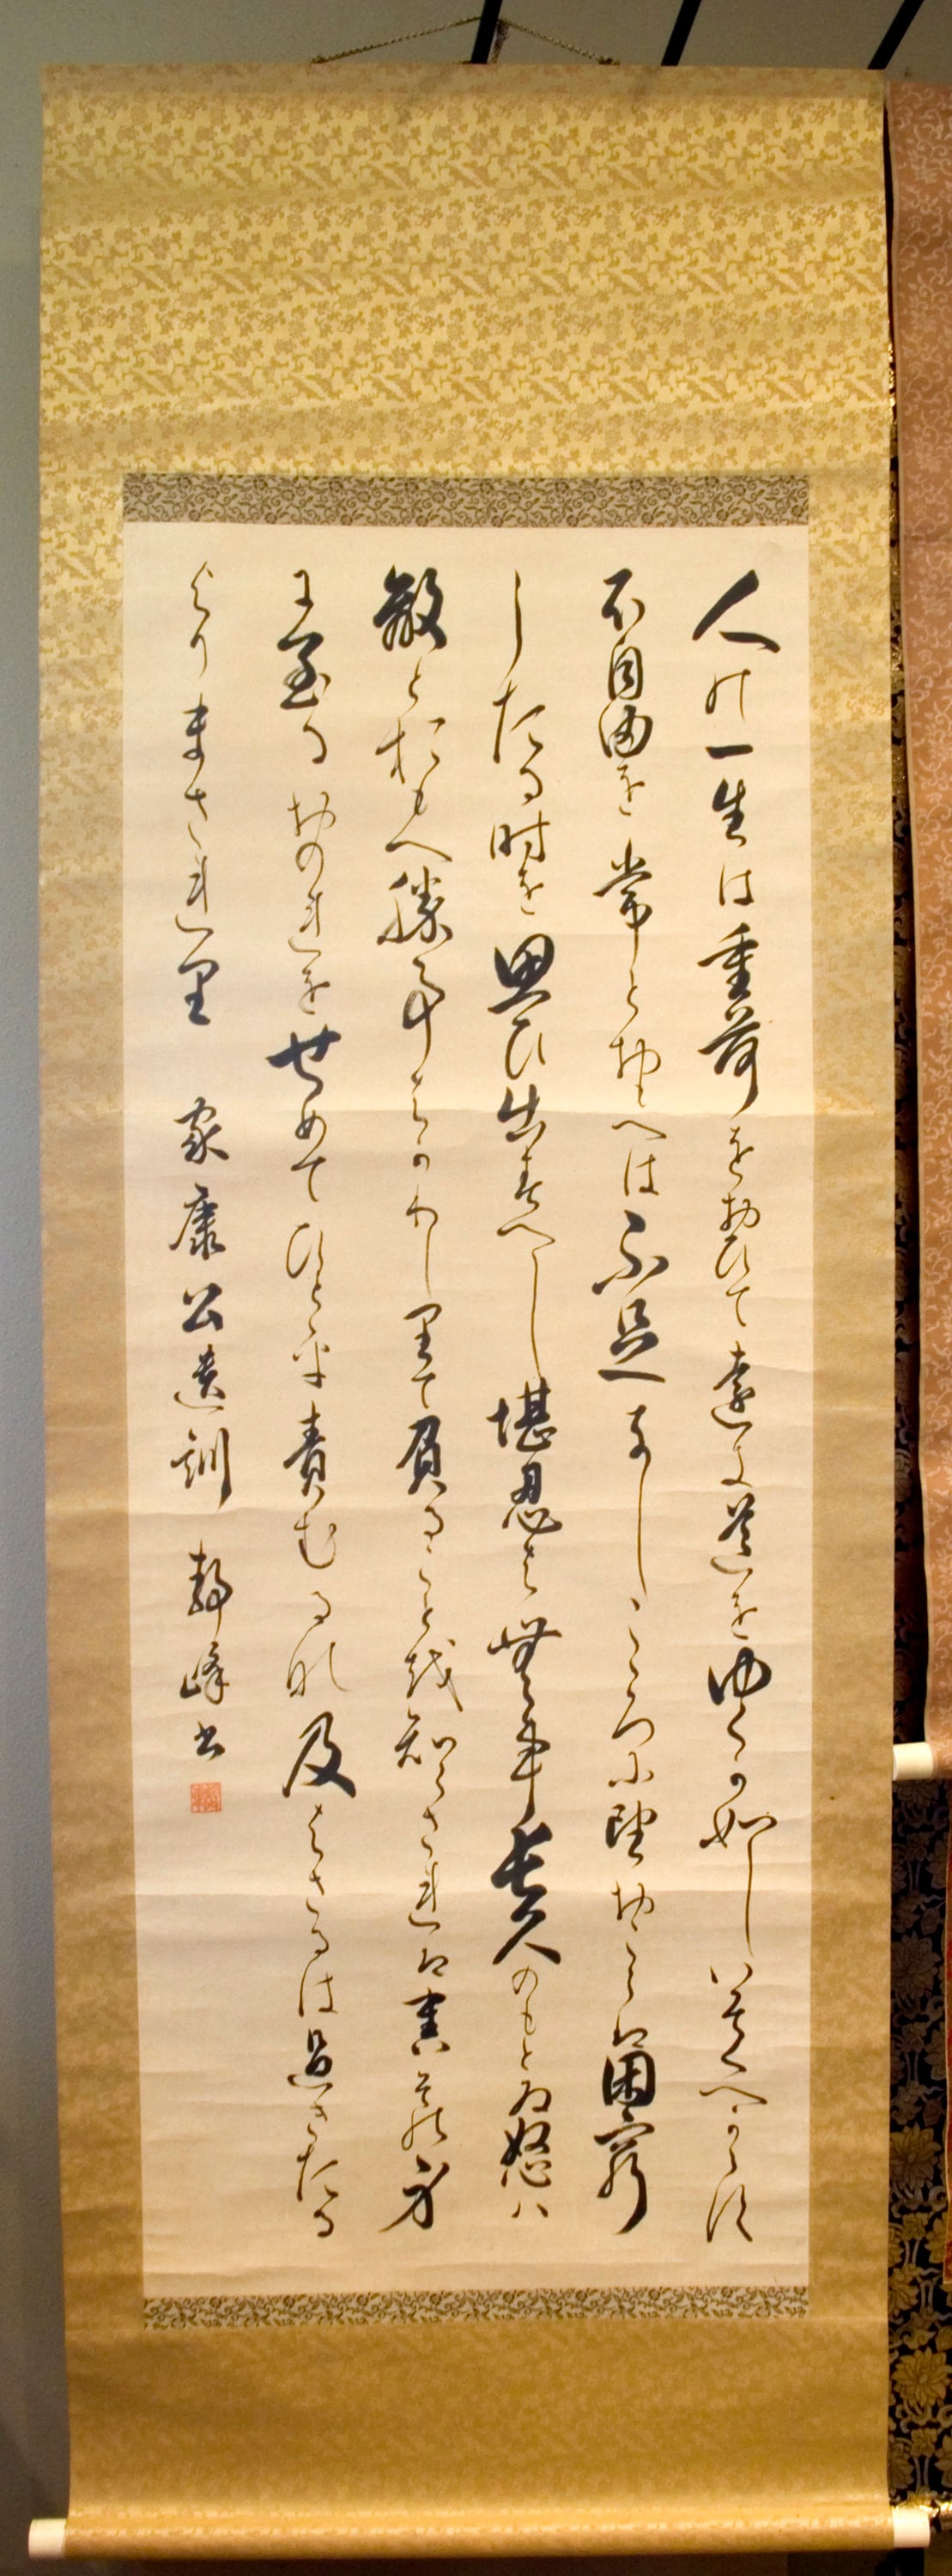 人の一生は重荷をおひて遠き道をゆくか如しいそくへからす
不自由を常とおもへは不足なしこゝろに望おこらは困窮
したる時を思ひ出すへし堪忍は無事長久のもとゐ怒ハ
敵とおもへ勝事はかりしりて負ることを知らされは害其身
に至るおのれをせめてひとを責むるな及はさるは過きたる
よりまされり 家康公遺訓 静峰書